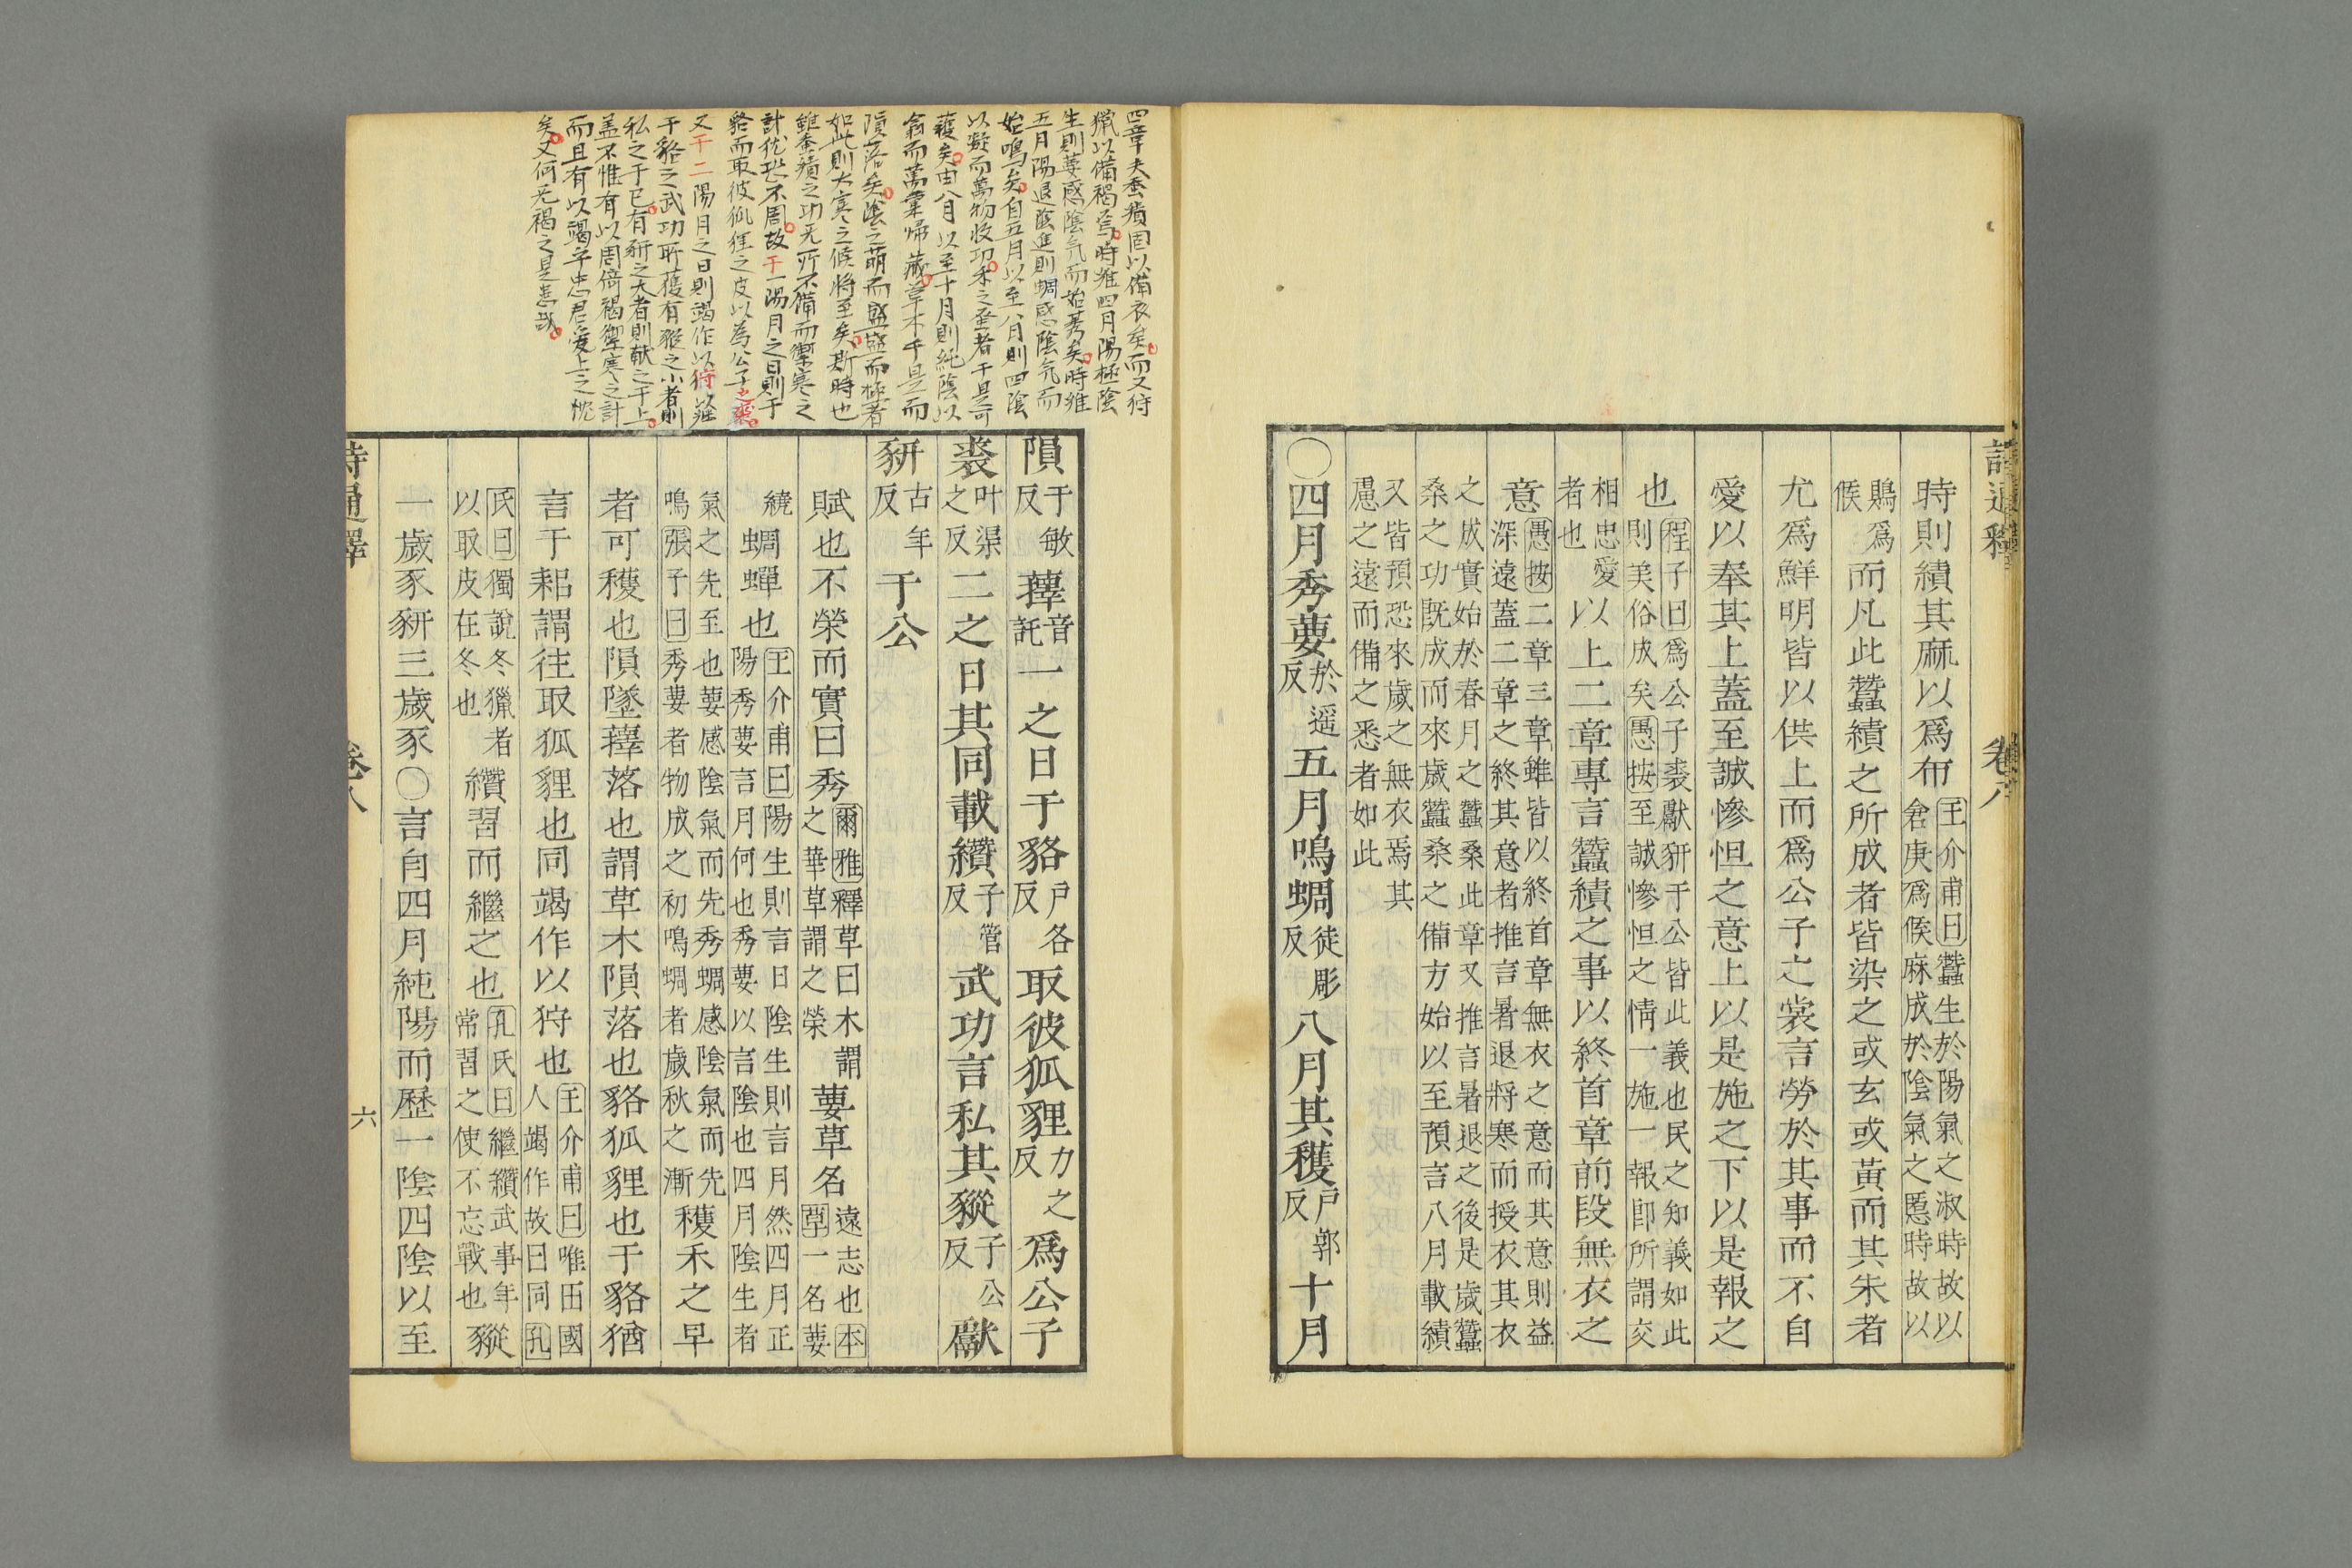 詩通釋 卷八
時則績其麻以爲布王介甫曰蠶生於陽氣之淑時故以
倉庚爲候麻成於陰氣之慝時故以
鵙爲
候而凡此蠶績之所成者皆染之或玄或黃而其朱者
尤爲鮮明皆以供上而爲公子之裳言勞於其事而不自
愛以奉其上蓋至誠慘怛之意上以是施之下以是報之
也程子曰爲公子裘獻豜于公皆此義也民之知義如此
則美俗成矣愚按至誠慘怛之情一施一報卽所謂交
相忠愛
者也以上二章專言蠶績之事以終首章前段無衣之
意愚按二章三章雖皆以終首章無衣之意而其意則益
深遠蓋二章之終其意者推言暑退將寒而授衣其衣
之成實始於春月之蠶桑此章又推言暑退之後是歲蠶
桑之功旣成而來歲蠶桑之備方始以至預言八月載績
又皆預恐來歲之無衣焉其
慮之遠而備之悉者如此
〇四月秀葽於遥反五月鳴蜩徒彫反八月其穫戶郭反十月
隕于敏反蘀音託一之日于貉戶各反取彼狐貍力之反爲公子
裘叶渠之反二之日其同載纘子管反武功言私其豵子公反獻
豜古年反于公
賦也不榮而實曰秀爾雅釋草曰木謂
之華草謂之榮葽草名遠志也本
草一名葽
繞蜩蟬也王介甫曰陽生則言日陰生則言月然四月正
陽秀葽言月何也秀葽以言陰也四月陰生者
氣之先至也葽感陰氣而先秀蜩感陰氣而先
鳴張子曰秀葽者物成之初鳴蜩者歲秋之漸穫禾之早
者可穫也隕墜蘀落也謂草木隕落也貉狐貍也于貉猶
言于耜謂往取狐貍也同竭作以狩也王介甫曰唯田國
人竭作故曰同孔
氏曰獨說冬獵者
以取皮在冬也纘習而繼之也孔氏曰繼纘武事年
常習之使不忘戰也豵
一歲豕豜三歲豕〇言自四月純陽而歷一陰四陰以至
詩通釋 卷八 六
四章夫蚕績固以備衣矣而又狩
獵以備褐焉時維四月陽極陰
生則葽感陰气而始秀矣時維
五月陽退陰進則蜩感陰气而
始鳴矣自五月以至八月則四陰
以凝而萬物收功禾之歪者于是可
穫矣由八月以至十月則純陰以
翕而萬彙歸藏草木于是而
隕落矣陰之萌而盛盛而極者
如此則大寒之候將至矣斯時也
雖蚕績之功无所不備而禦寒之
計犹恐不周故于一陽月之日則于
貉而取彼狐狸之皮以為公子之裘
又于二陽月之日則竭作以狩雖
于貉之武功所獲有豵之小者則
私之于已有豜之大者則献之于上
盖不惟有以周偹褐禦寒之計
而且有以竭乎忠君爱上之忱
矣又何无褐之是患哉